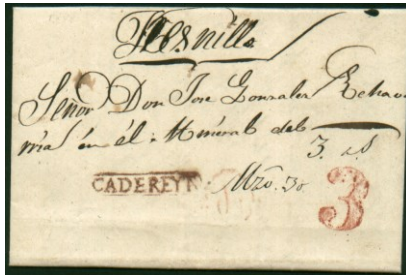 Fresnillo
Señor Don Jose Gonzales Echavar
ria en el Mineral del
3. rs
CADEREYT. Mzo. 30
3